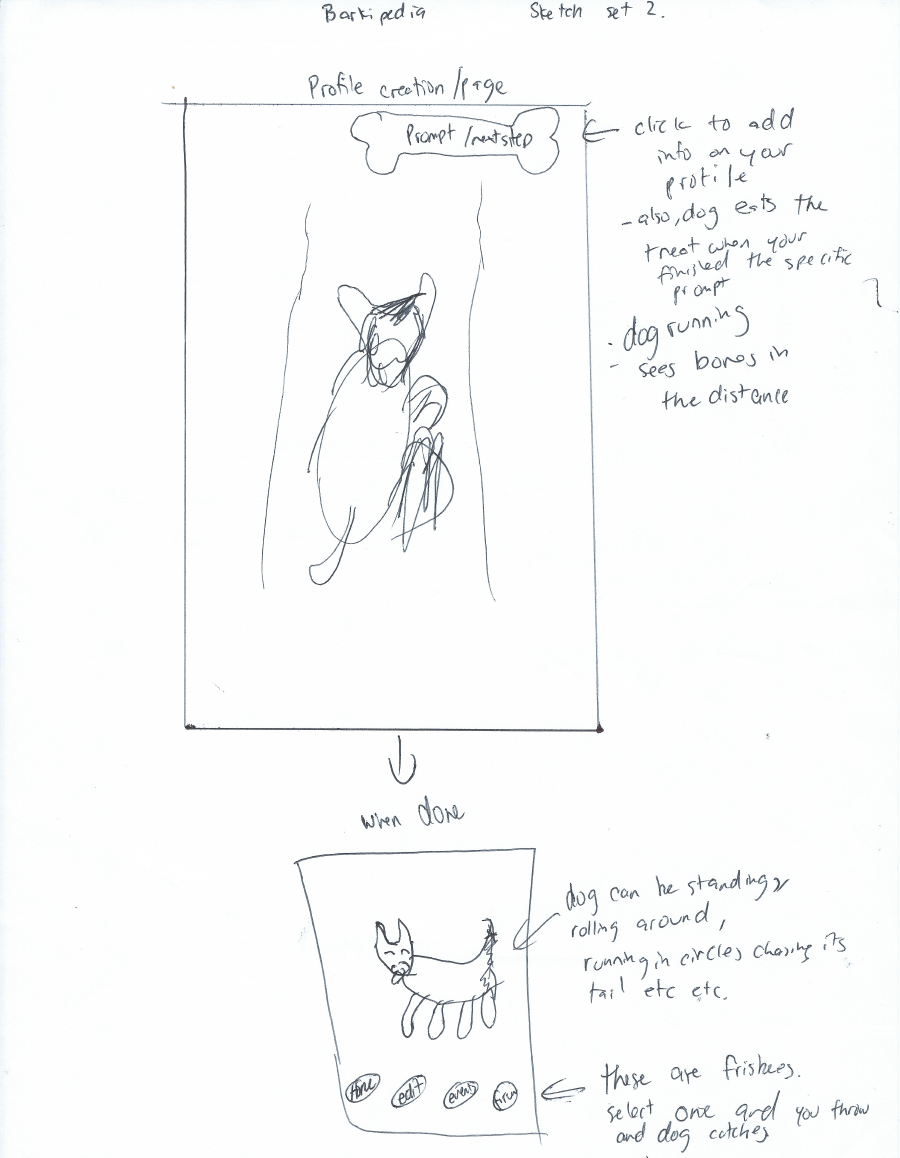 Barkipedia Sketch set 2.
Profile creation/page
Prompt /next step
click to add
info on your
profile
- also, dog eats the
treat when your
finished the specific
prompt
· dog running
- sees bones in
the distance
when done
dog can be standing,
rolling around,
running in circles chasing its
tail etc etc.
edit
these are frisbees.
select one and you throw
and dog catches